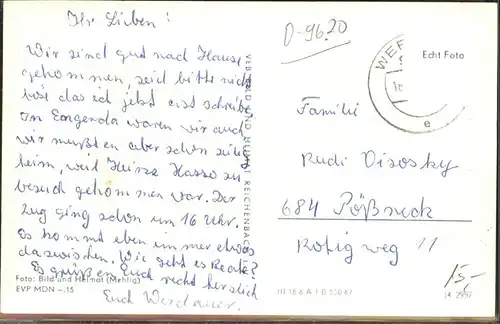 Ihr Lieben!
Wir sind gut nach Hause
gekommen, seid bitte nicht
böse das ich jetzt erst schreibe
in waren wir auch
wir mußten aber schon zeitig
heim, weil Heinz Hasse zu
besuch gekommen war. Der
Zug ging schon um 16 Uhr.
Es kommt eben immer etwas
dazwischen. Wie geht es Beate?
Es grüßen Euch recht herzlich
Euch Werdauer.
Foto: Bild und Heimat (Mehlig)
EVP MDN –.15
VEB BILD UND HEIMAT REICHENBACH
D-9620
Echt Foto
WER
e
Familie
Rudi Disosky
684 Pößneck
Kotigweg 11
III 18 6 A 1 B 550 67
14 2997